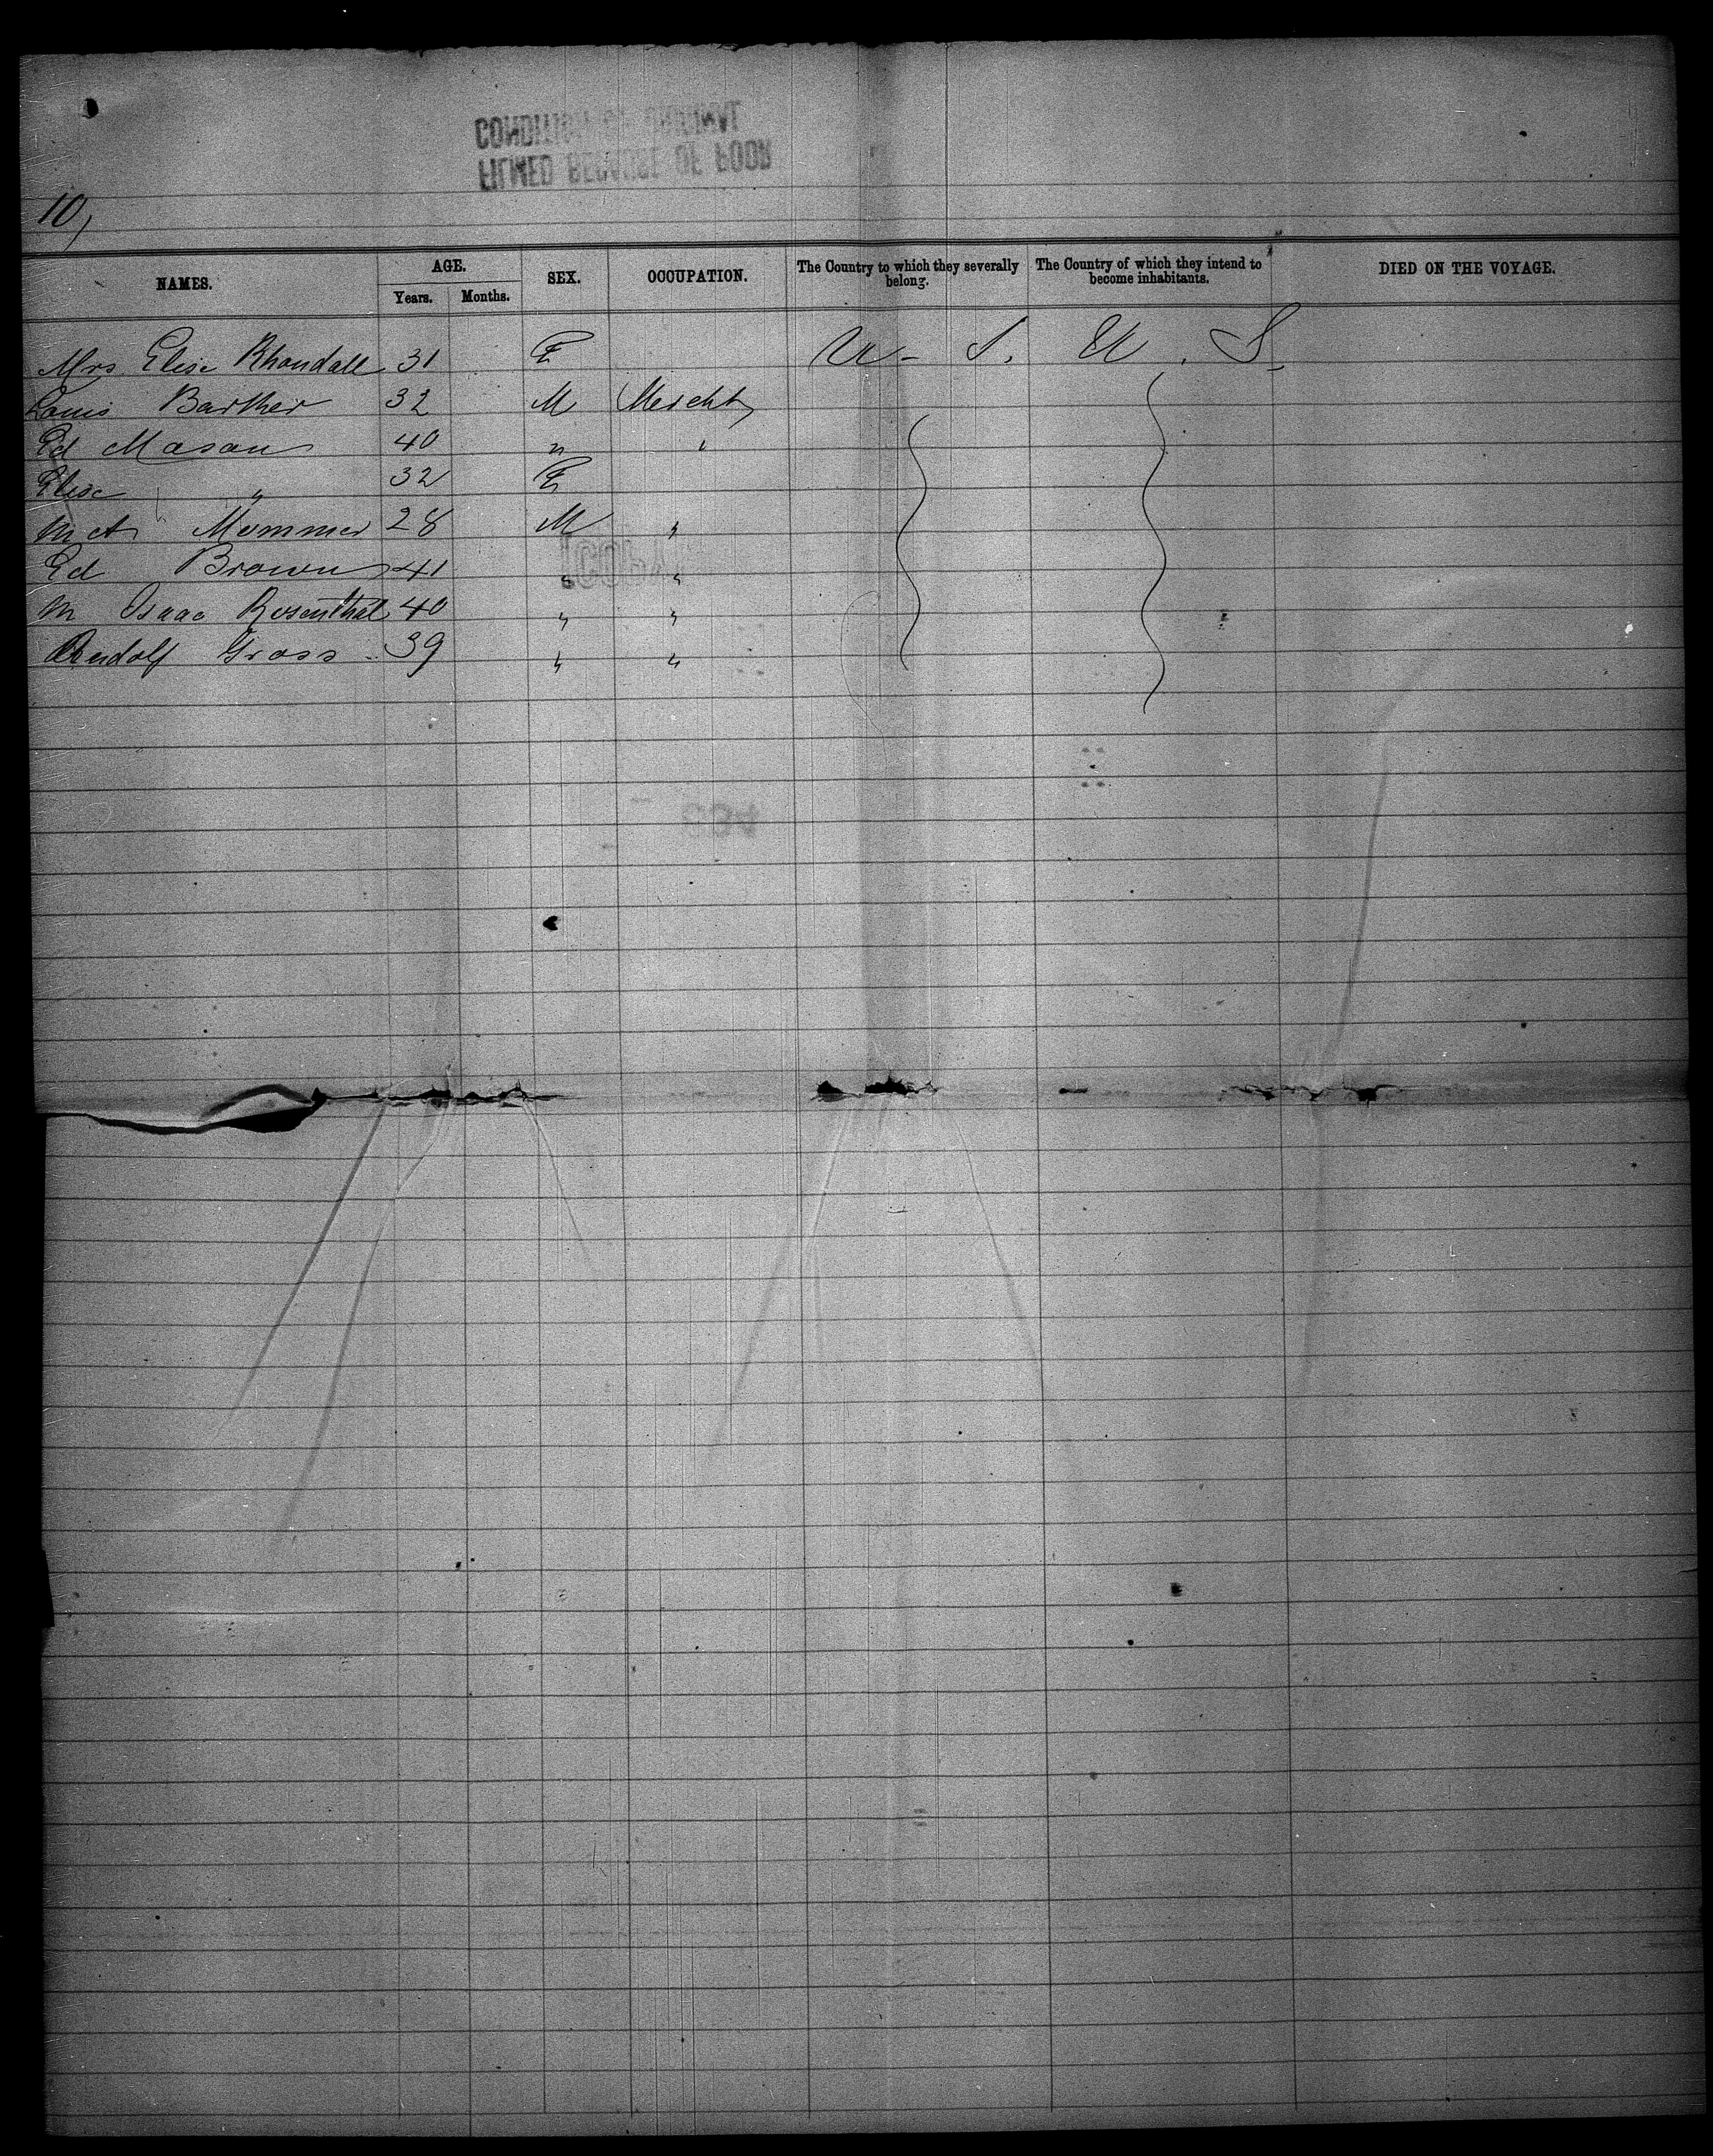 10,
NAMES. AGE. SEX. OCCUPATION. The Country to which they severally belong. The Country of which they intend to become inhabitants. DIED ON THE VOYAGE.
Years. Months.
Mrs Elise Rhondall 31 F U. S. U. S.
Louis Barther 32 M Mercht
Ed Mason 40 " "
Elise " 32 F
28 M "
Ed Brown 41 " "
M Isaac Rosenthal 40 " "
Rudolf Gross 39 " "